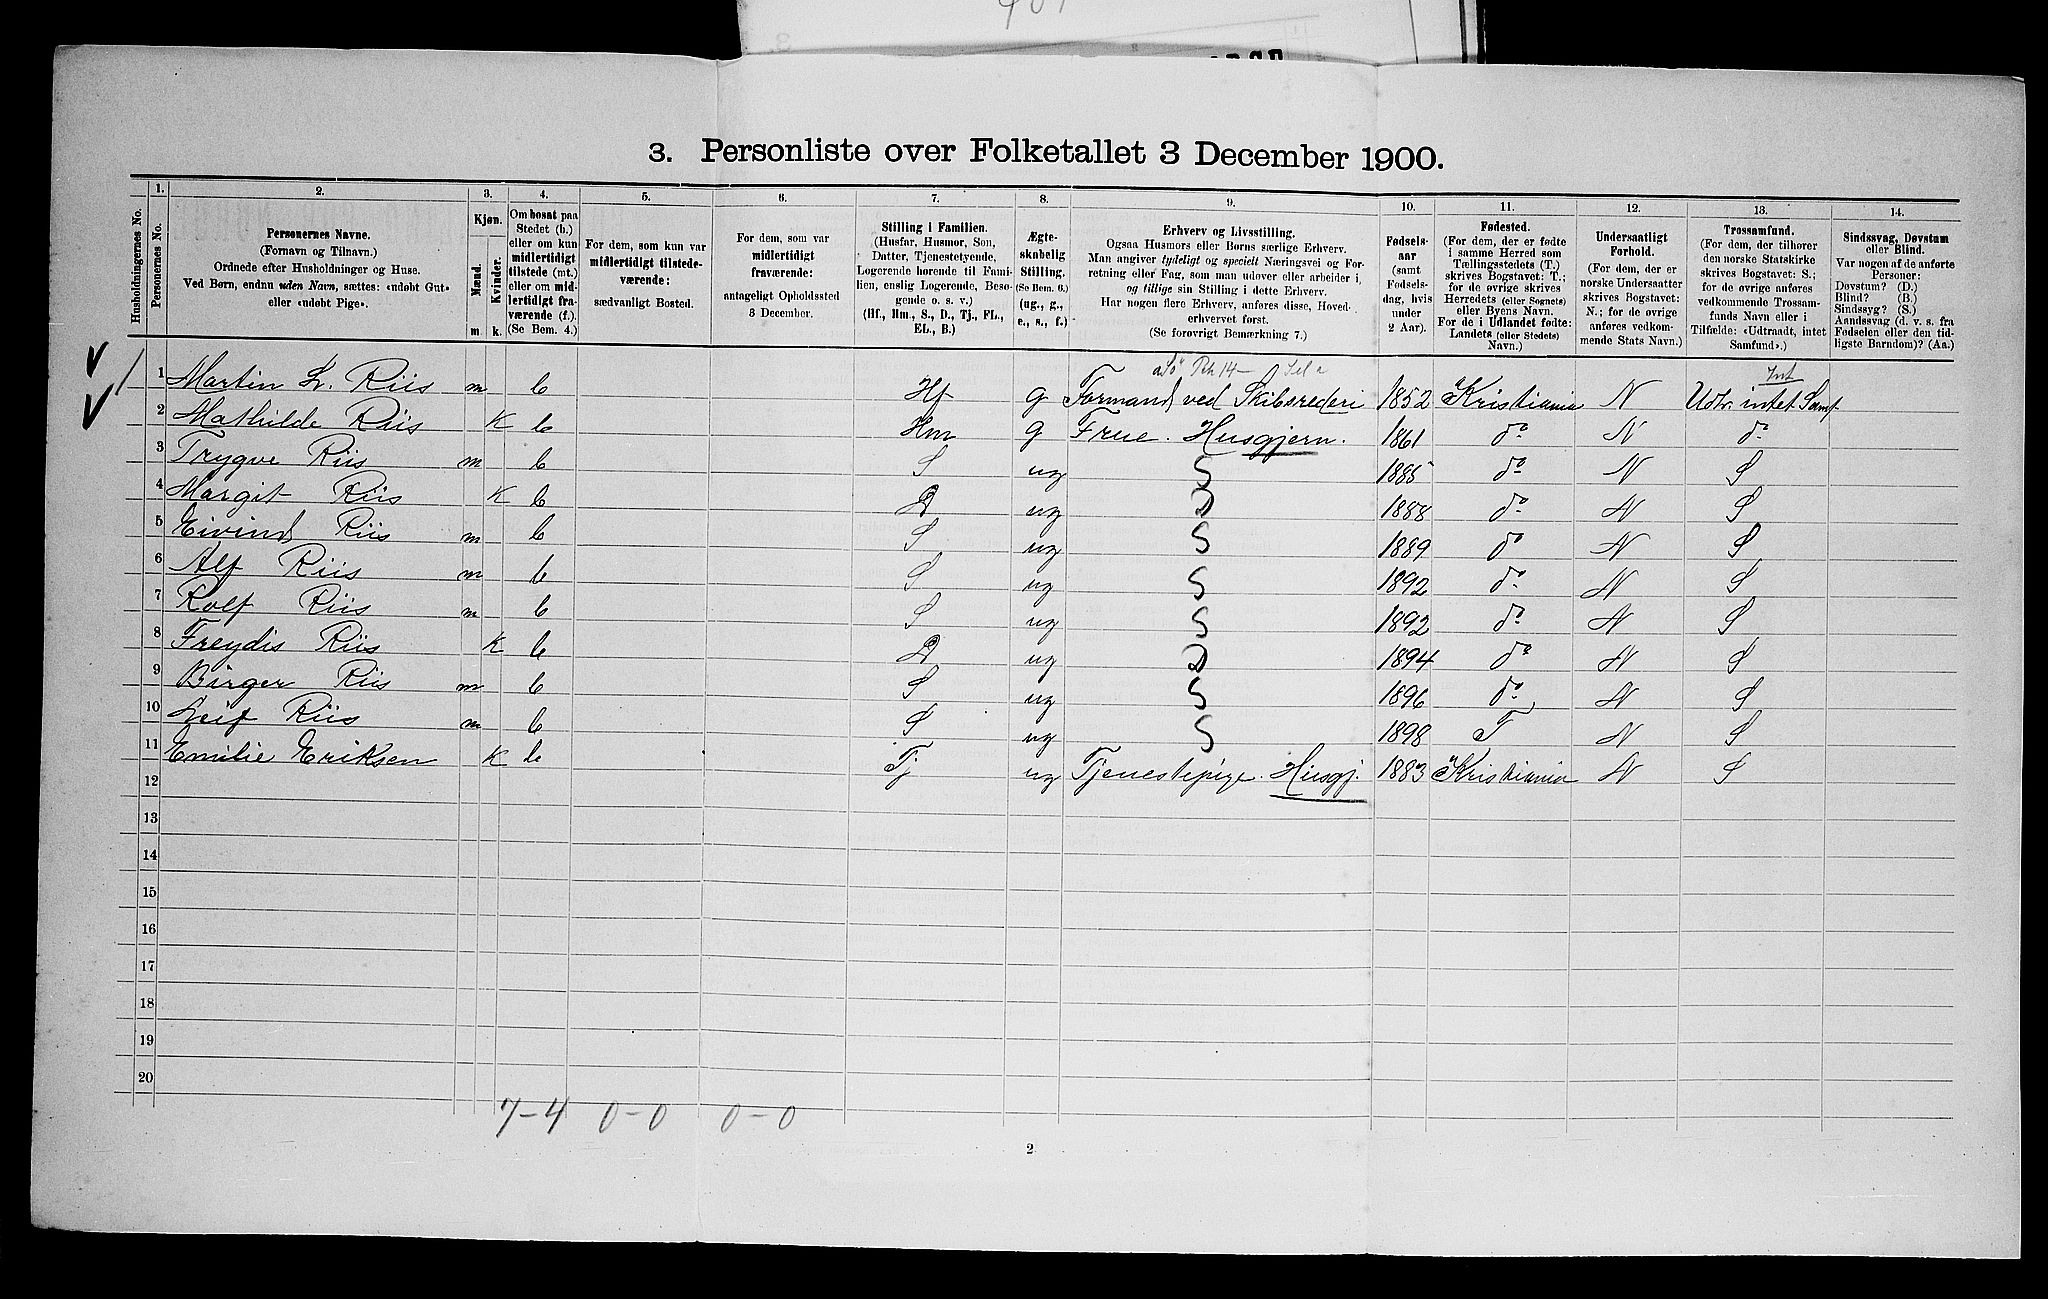 3. Personliste over Folketallet 3 December 1900.
Husholdningernes No.
1.
Personernes No.
2.
Personernes Navne.
(Fornavn og Tilnavn.)
Ordnede efter Husholdninger og Huse.
Ved Børn, endnu uden Navn, sættes: «udøbt Gut»
eller «udøbt Pige».
3.
Kjøn.
Mænd.
Kvinder.
m.
k.
4.
Om bosat paa
Stedet (b.)
eller om kun
midlertidigt
tilstede (mt.)
eller om mid-
lertidigt fra-
værende (f.).
(Se Bem. 4.)
5.
For dem, som kun var
midlertidigt tilstede-
værende:
sædvanligt Bosted.
6.
For dem, som var
midlertidigt
fraværende:
antageligt Opholdssted
3 December.
7.
Stilling i Familien.
(Husfar, Husmor, Søn,
Datter, Tjenestetyende,
Logerende hørende til Fami-
lien, enslig Logerende, Besø-
gende o. s. v.)
(Hf., Hm., S., D., Tj., FL.,
EL., B.)
8.
Ægte-
skabelig
Stilling.
(Se Bem. 6.)
(ug., g.,
e., s., f.)
9.
Erhverv og Livsstilling.
Ogsaa Husmors eller Børns særlige Erhverv.
Man angiver tydeligt og specielt Næringsvei og For-
retning eller Fag, som man udøver eller arbeider i,
og tillige sin Stilling i dette Erhverv.
Har nogen flere Erhverv, anføres disse, Hoved-
erhvervet først.
(Se forøvrigt Bemærkning 7.)
10.
Fødsels-
aar
(samt
Fødsels-
dag, hvis
under
2 Aar).
11.
Fødested.
(For dem, der er fødte
i samme Herred som
Tællingsstedets (T.)
skrives Bogstavet: T.;
for de øvrige skrives
Herredets (eller Sognets)
eller Byens Navn.
For de i Udlandet fødte:
Landets (eller Stedets)
Navn.)
12.
Undersaatligt
Forhold.
(For dem, der er
norske Undersaatter
skrives Bogstavet:
N.; for de øvrige
anføres vedkom-
mende Stats Navn.)
13.
Trossamfund.
(For dem, der tilhører
den norske Statskirke
skrives Bogstavet: S.;
for de øvrige anføres
vedkommende Trossam-
funds Navn eller i
Tilfælde: «Udtraadt, intet
Samfund».)
14.
Sindssvag, Døvstum
eller Blind.
Var nogen af de anførte
Personer:
Døvstum? (D.)
Blind? (B.)
Sindssyg? (S.)
Aandssvag (d. v. s. fra
Fødselen eller den tid-
ligste Barndom)? (Aa.)
1 Martin L. Riis m b Hf g Formand ved Skibsrederi 1852 Kristiania N Udtr. intet Samf.
2 Mathilde Riis K b Hm g Frue. Husgjern. 1861 do N do
3 Trygve Riis m b S ug S 1885 do N S
4 Margit Riis K b D ug D 1888 do N S
5 Eivind Riis m b S ug S 1889 do N S
6 Alf Riis m b S ug S 1892 do N S
7 Rolf Riis m b S ug S 1892 do N S
8 Freydis Riis K b D ug D 1894 do N S
9 Birger Riis m b S ug S 1896 do N S
10 Leif Riis m b S ug S 1898 T N S
11 Emilie Eriksen K b Tj ug Tjenestepige. Husgj. 1883 Kristiania N S
12
13
14
15
16
17
18
19
20
7-4 0-0 0-0
2